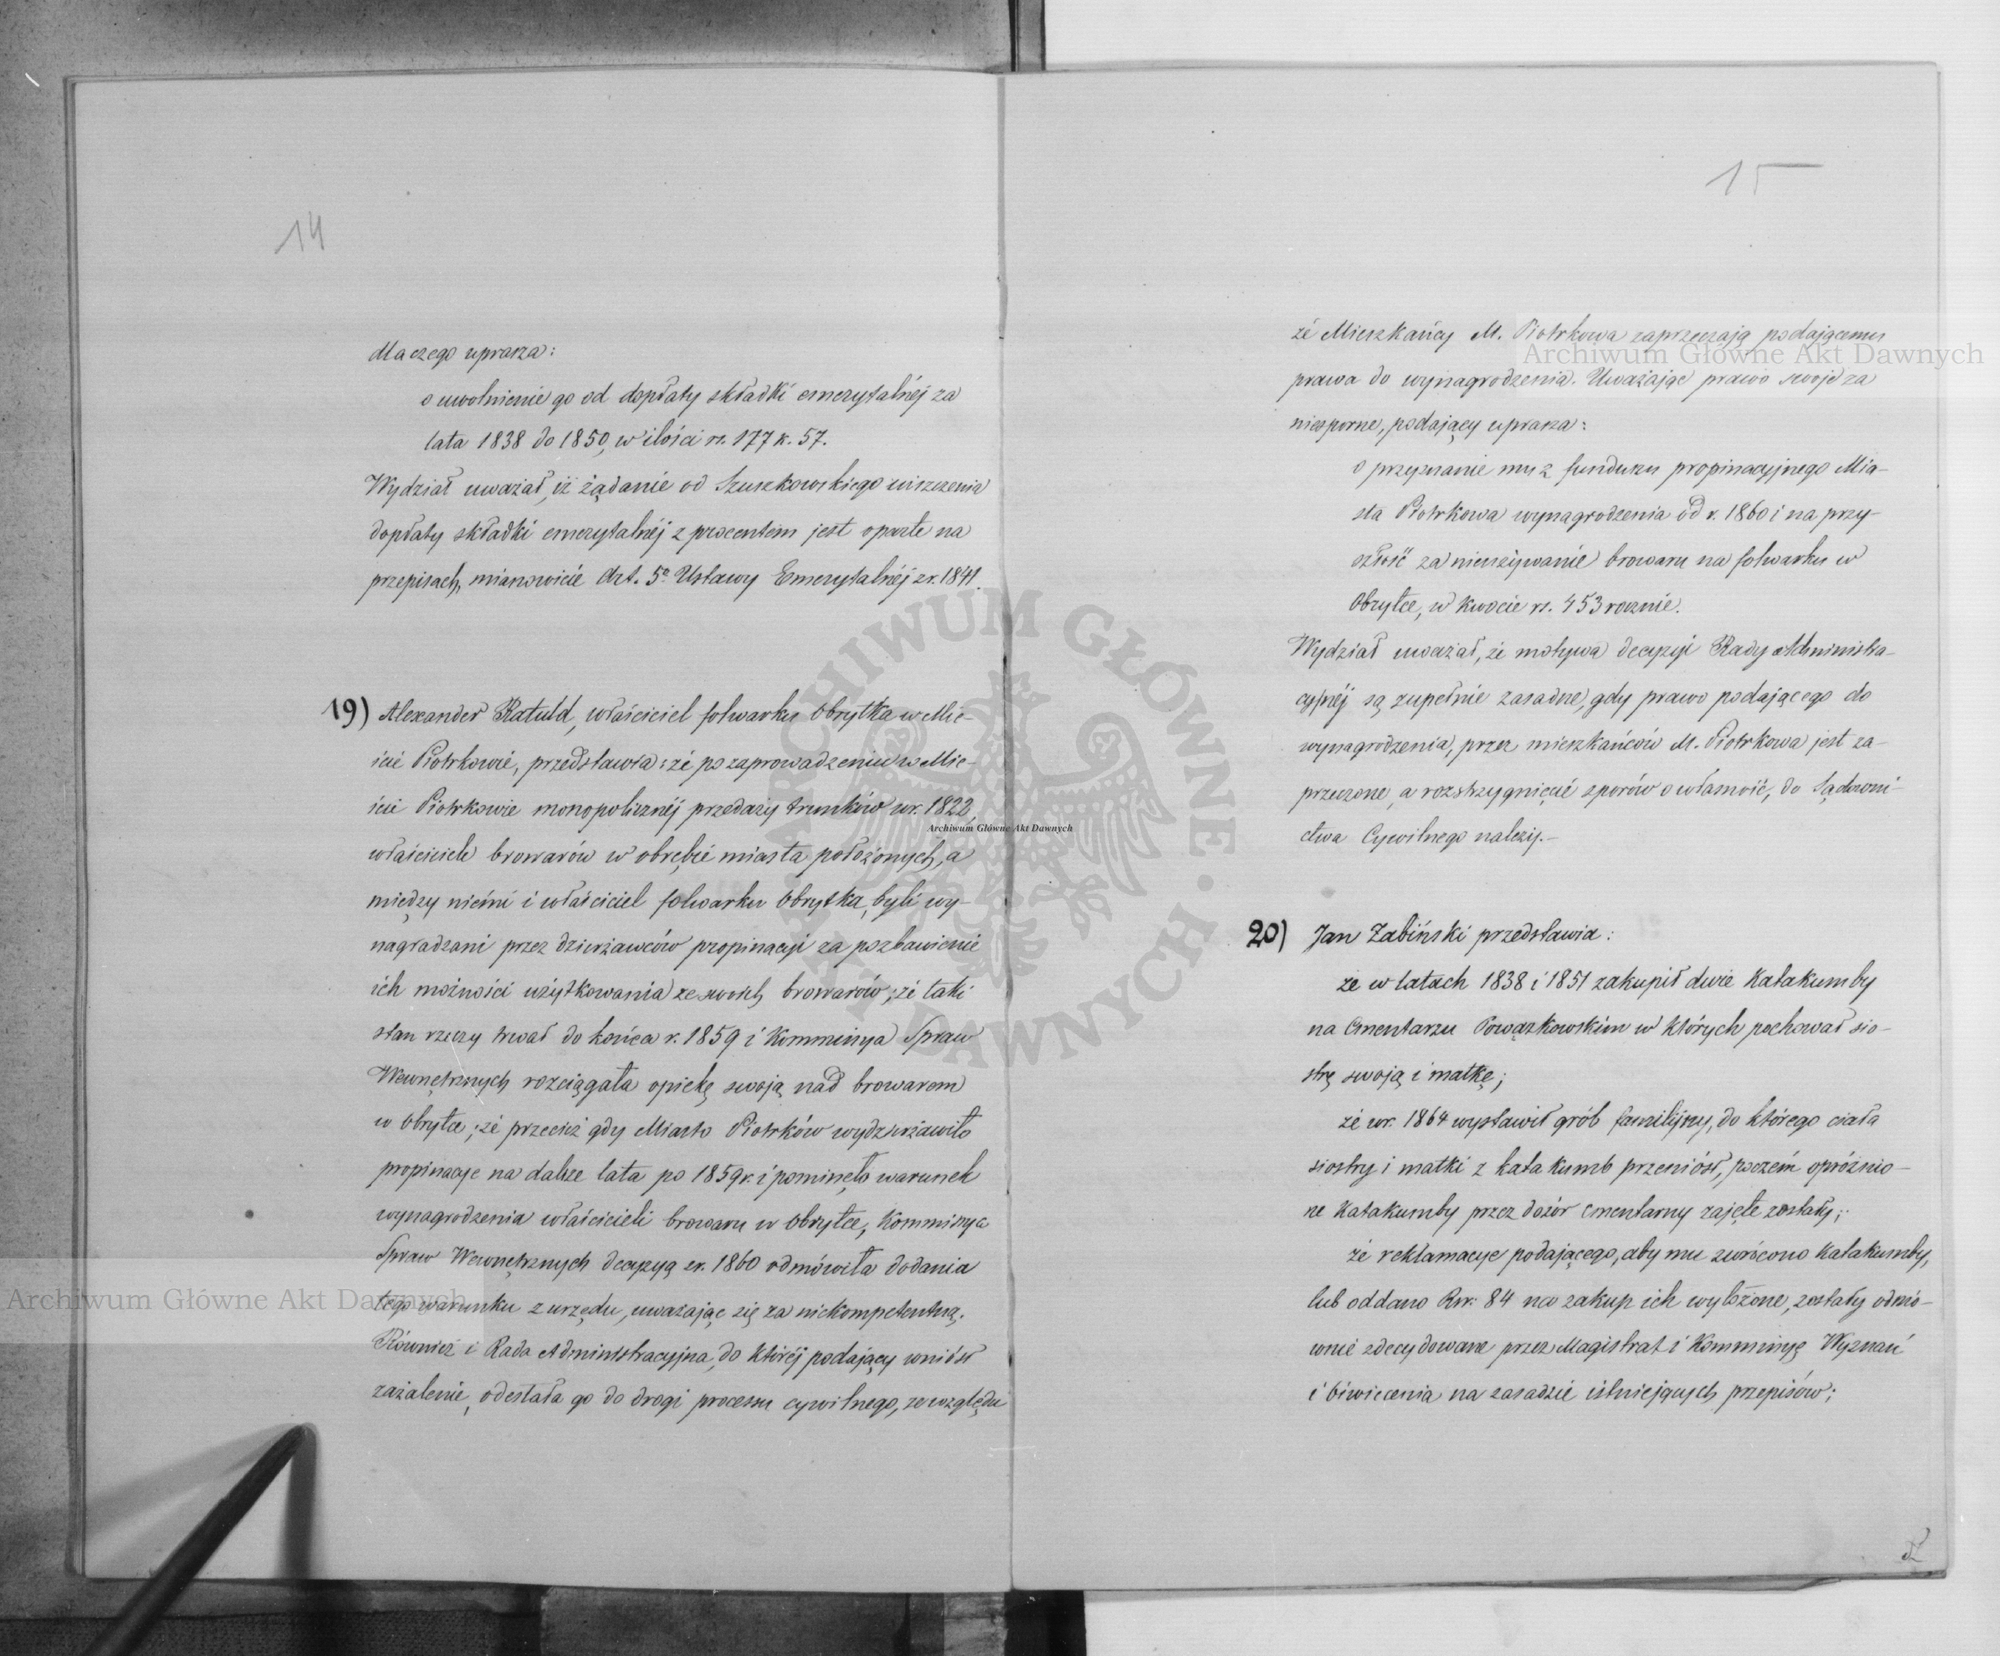 14
dla czego uprasza:
o uwolnienie go od dopłaty składki emerytalnéj za
lata 1838 do 1850, w ilości rs. 177 k. 57.
Wydział uważał, iż żądanie od Szuszkowskiego uiszczenia
dopłaty składki emerytalnéj z procentem jest oparte na
przepisach, mianowicie Art. 5º Ustawy Emerytalnéj z r. 1841.
19) Alexander Ratuld, właściciel folwarku Obrytka w Mie-
ście Piotrkowie, przedstawia: że po zaprowadzeniu w Mie-
ście Piotrkowie monopolicznéj przedaży trunków w r. 1822,
właściciele browarów w obrębie miasta położonych, a
między niémi i właściciel folwarku Obrytka, byli wy-
nagradzani przez dzierżawców propinacyi za pozbawienie
ich możności użytkowania ze swoich browarów; że taki
stan rzeczy trwał do końca r. 1859 i Kommissya Spraw
Wewnętrznych rozciągała opiekę swoją nad browarem
w Obrytce; że przecież gdy Miasto Piotrków wydzierżawiło
propinacye na dalsze lata po 1859 r. i pominęło warunek
wynagrodzenia właścicieli browaru w Obrytce, Kommissya
Spraw Wewnętrznych decyzyą z r. 1860 odmówiła dodania
tego warunku z urzędu, uważając się za niekompetentną.
Również i Rada Administracyjna, do któréj podający wniósł
zażalenie, odesłała go do drogi processu cywilnego, ze względu
15
że Mieszkańcy M. Piotrkowa zaprzeczają podającemu
prawa do wynagrodzenia. Uważając prawo swoje za
niesporne, podający uprasza:
o przyznanie mu z funduszu propinacyjnego Mia-
sta Piotrkowa wynagrodzenia od r. 1860 i na przy-
szłość za nieużywanie browaru na folwarku w
Obrytce, w kwocie rs. 453 rocznie.
Wydział uważał, że motywa decyzyi Rady Administra-
cyjnéj są zupełnie zasadne, gdy prawo podającego do
wynagrodzenia, przez mieszkańców M. Piotrkowa jest za-
przeczone, a rozstrzygnięcie sporów o własność, do Sądowni-
ctwa Cywilnego należy.-
20) Jan Żabiński przedstawia:
że w latach 1838 i 1851 zakupił dwie Katakumby
na Cmentarzu Powązkowskim w których pochował sio-
strę swoją i matkę;
że w r. 1864 wystawił grób familijny, do którego ciała
siostry i matki z katakumb przeniósł, poczém opróżnio-
ne Katakumby przez dozór cmentarny zajęte zostały;
że reklamacye podającego, aby mu zwrócono Katakumby,
lub oddano Rsr. 84 na zakup ich wyłożone, zostały odmo-
wnie zdecydowane przez Magistrat i Kommissyę Wyznań
i Oświecenia na zasadzie istniejących przepisów;
Archiwum Główne Akt Dawnych
Archiwum Główne Akt Dawnych
Archiwum Główne Akt Dawnych
ARCHIWUM GŁÓWNE · AKT DAWNYCH ·